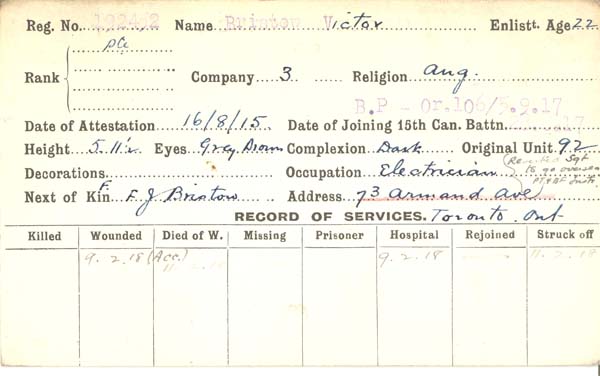 Reg. No. Name Bristow Victor Enlistt. Age 22
Pte
Rank Company 3 Religion Ang.
B.P - Or.106/5.9.17
Date of Attestation 16/8/15. Date of Joining 15th Can. Battn.
Height 5.11½ Eyes Grey Brown Complexion Dark Original Unit 92
Decorations Occupation Electrician (Reverted Sgt
to go overseas
Next of Kin F. F. J Bristow Address 73 Armand Ave
RECORD OF SERVICES. Toronto Ont
Killed Wounded Died of W. Missing Prisoner Hospital Rejoined Struck off
9.2.18 (Acc.) 9.2.18 11.2.18
11.2.18